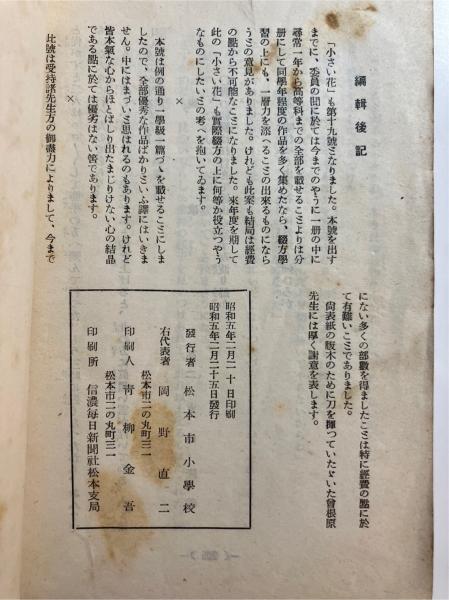 編輯後記
「小さい花」も第十九號となりました。本號を出す
までに、委員の間に於ては今までのやうに一册の中に
尋常一年から高等科までの全部を載せることよりは分
册にして同學年程度の作品を多く集めたなら、綴方學
習の上にも、一層力を添へることの出來るものになら
うとの意見がありました。けれども此案も結局は經費
の點から不可能なことになりました。來年度を期して
此の「小さい花」も實際綴方の上に何等か役立つやう
なものにしたいとの考へを抱いてゐます。
×
本號は例の通り一學級一篇づゝを載せることにしま
したので、全部優秀な作品ばかりといふ譯にはいきま
せん。中にはまづいと思はれるのもあります。けれど
皆本氣な心からほとばしり出たまじりけない心の結晶
である點に於ては優劣はない筈であります。
×
此號は受持諸先生方の御盡力によりまして、今まで
にない多くの部數を得ましたことは特に經費の點に於
て有難いことでありました。
尙表紙の版木のために刀を揮つていたゞいた曾根原
先生には厚く謝意を表します。
昭和五年二月二十日印刷
昭和五年二月二十五日發行
發行者 松本市小學校
右代表者 岡野直二
松本市二の丸町三一
印刷人 靑柳金吾
松本市二の丸町三一
印刷所 信濃每日新聞社松本支局